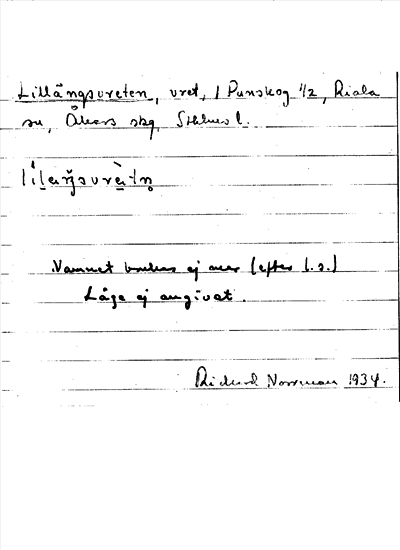 Lillängsvreten, vret, / Punskog 1/2, Riala
sn, Åkers skg, Sthlms l.
Namnet brukas ej mer (efter l.s.)
Läge ej angivet.
Richard Norrman 1934.